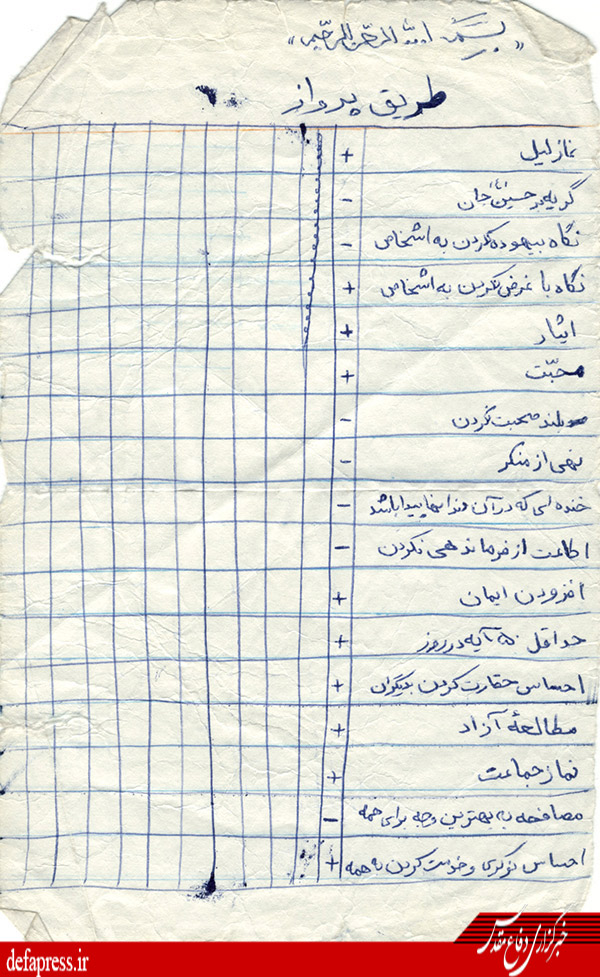 «بسم الله الرحمن الرحیم»
طریق پرواز
نماز لیل +
گریه بر حسین جان -
نگاه بیهوده کردن به اشخاص -
نگاه با غرض نکردن به اشخاص +
ایثار +
محبّت +
بلند صحبت کردن -
نهی از منکر -
خنده ای که در آن دندانها پیدا باشد -
اطاعت از فرماندهی نکردن -
افزودن ایمان +
حداقل ۵۰ آیه در روز +
احساس حقارت کردن بدیگران +
مطالعهٔ آزاد +
نماز جماعت +
مصافحه به بهترین وجه برای همه -
احساس نوکری و خدمت کردن به همه +
خبرگزاری دفاع مقدس
defapress.ir